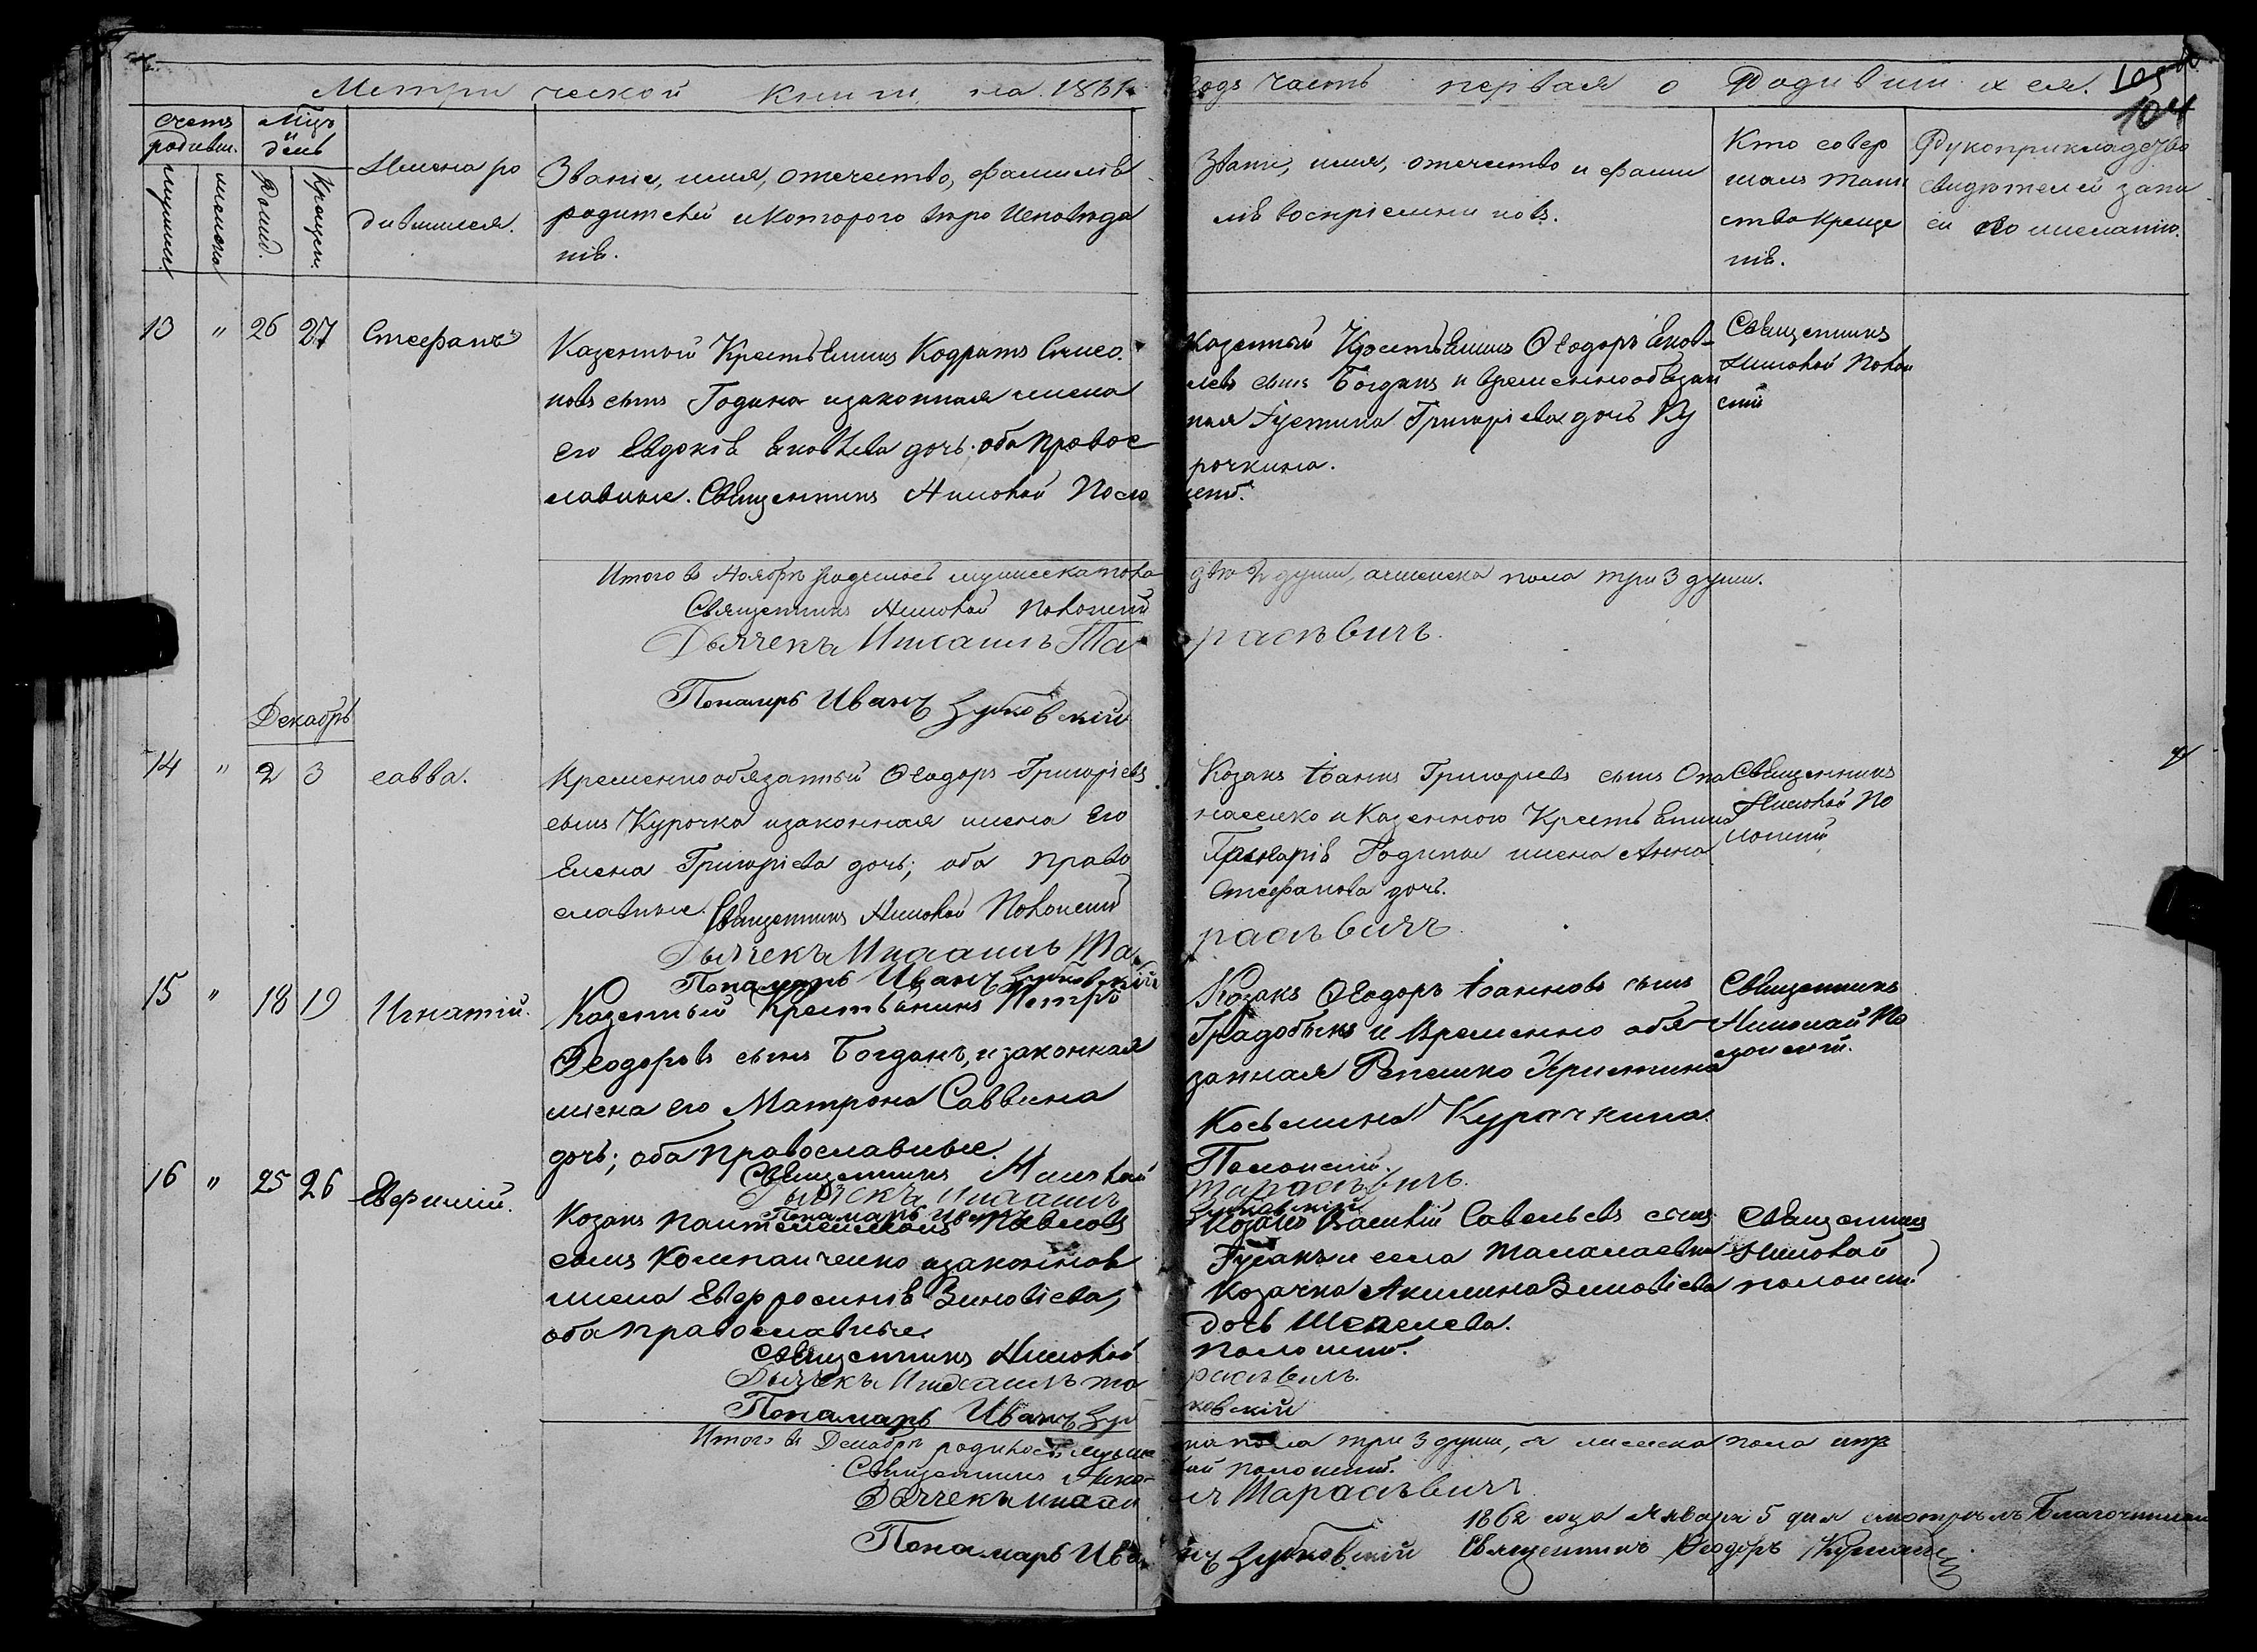 Метрической книги на 1861 годъ часть первая о Родившихся.
104
Счетъ родивш.
Мѣсяцъ и день
мужеска
женска
Рожд.
Крещен.
Имена родившихся.
Званіе, имя, отечество, фамилія
родителей и которого вѣроисповѣда
нія.
Званіе, имя, отечество и фами
лія воспріемниковъ.
Кто совер
шалъ таин
ство креще
нія.
Рукоприкладство
свидѣтелей запи
си по желанію.
13 " 26 27 Стефанъ
Казенный Крестьянинъ Кодратъ Симео
новъ сынъ Година и законная жена
его Евдокія Яковлева дочь; оба правос
лавные. Священникъ Николай Поло
Казенный Крестьянинъ Ѳеодоръ Яков-
левъ сынъ Богданъ и временнообязан
ная Іустина Григоріева дочь Ку
рочкина.
Священникъ
Николай Полон
скій
Итого въ Ноябрѣ родилось мужеска пола
двѣ 2 души, а женска пола три 3 души.
Священникъ Николай Полонскій
Дьячекъ Михаилъ Тарасѣвичъ.
Понамарь Иванъ Зубковскій
Декабрь
14 " 2 3 Савва.
Временнообязанный Ѳеодоръ Григоріевъ
сынъ Курочка и законная жена его
Елена Григоріева дочь; оба право
славные. Священникъ Николай Полонскій
Дьячекъ Михаилъ Тарасѣвичъ.
Понамарь Иванъ Зубковскій
Козакъ Іоаннъ Григоріевъ сынъ Опа
насенко и Казенного Крестьянина
Григорія Годины жена Анна
Стефанова дочь.
Священникъ
Николай По
лонскій
15 " 18 19 Игнатій.
Казенный Крестьянинъ Петръ
Ѳеодоровъ сынъ Богданъ, и законная
жена его Матрона Саввина
дочь; оба православные.
Священникъ Николай Полонскій.
Дьячекъ Михаилъ Тарасѣвичъ.
Понамарь Иванъ Зубковскій
Козакъ Ѳеодоръ Іоанновъ сынъ
и Временно обя-
занная Христина
Косьмина Курачкина.
Священникъ
Николай По
лонскій.
16 " 25 26 Евфимій.
Козакъ Пантелеимонъ Павловъ
сынъ Компанченко и законная
жена Евфросинія Зиновіева,
оба православные.
Священникъ Николай Полонскій.
Дьячекъ Михаилъ Тарасѣвичъ.
Понамарь Иванъ Зубковскій
Козакъ Василій Савельевъ сынъ
и села Талалаевки
Козачка Акилина Зиновіева
дочь Шепелева.
Священникъ
Николай
Полонскій
Итого въ Декабрѣ родилось мужеска пола три 3 души, а женска пола
Священникъ Николай Полонскій.
Дьячекъ Михаилъ Тарасѣвичъ
Понамарь Иванъ Зубковскій
1862 года Января 5 дня смотрѣлъ Благочинный
Священникъ Ѳеодоръ